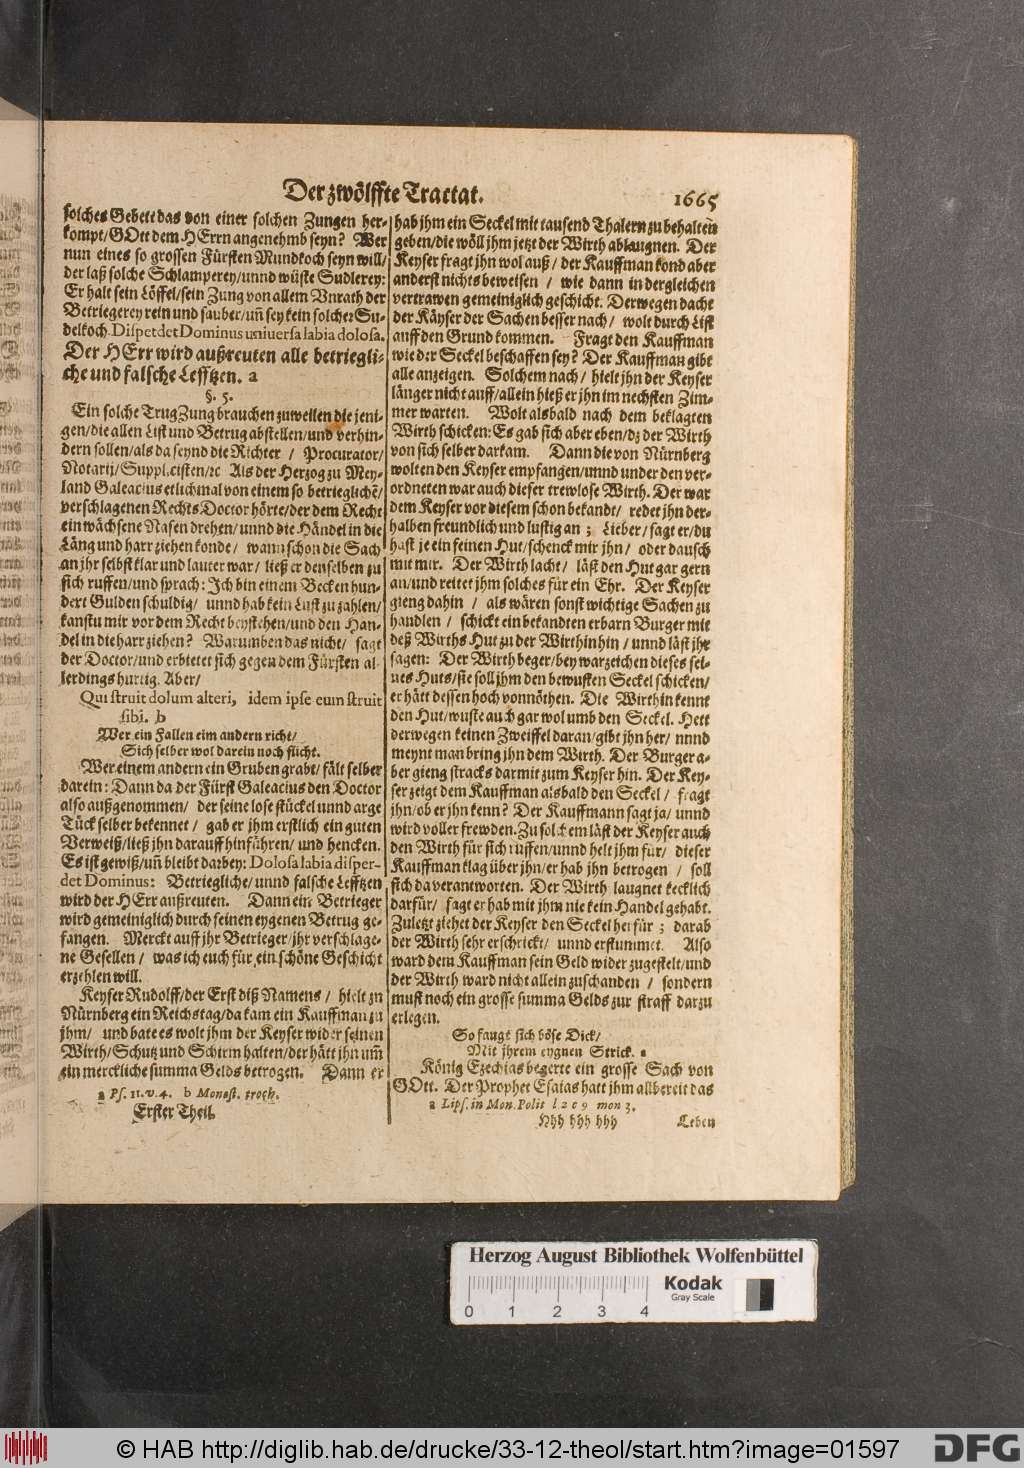 Der zwölffte Tractat. 1665
solches Gebett das von einer solchen Zungen her-
kompt/GOtt dem HErrn angenehmb seyn? Wer
nun eines so grossen Fürsten Mundkoch seyn will/
der laß solche Schlamperey/unnd wüste Sudlerey:
Er halt sein Löffel/sein Zung von allem Vnrath der
Betriegerey rein und sauber/uñ sey kein solcher Su-
delkoch. Disperdet Dominus universa labia dolosa.
Der HErr wird außreuten alle betriegli-
che und falsche Lefftzen. a
§. 5.
Ein solche Trug Zung brauchen zuweilen die jeni-
gen/die allen List und Betrug abstellen/und verhin-
dern sollen/als da seynd die Richter / Procurator/
Notarij/Supplicisten/ꝛc Als der Herzog zu Mey-
land Galeacius etlichmal von einem so betrieglichẽ/
verschlagenen Rechts Doctor hörte/der dem Recht
ein wächsene Nasen drehen/ unnd die Händel in die
Läng und harr ziehen konde/ wann schon die Sach
an jhr selbst klar und lauter war/ ließ er denselben zu
sich ruffen/und sprach: Ich bin einem Becken hun-
dert Gulden schuldig/ unnd hab kein Lust zu zahlen/
kanstu mir vor dem Recht beystehen/und den Han-
del in die harr ziehen? Warumben das nicht/ sagt
der Doctor/und erbietet sich gegen dem Fürsten al-
lerdings hurtig. Aber/
Qui struit dolum alteri, idem ipse eum struit
sibi. b
Wer ein Fallen eim andern richt/
Sich selber wol darein noch flicht.
Wer einem andern ein Gruben grabt/fält selber
darein: Dann da der Fürst Galeacius den Doctor
also außgenommen/ der seine lose stückel unnd arge
Tück selber bekennet / gab er jhm erstlich ein guten
Verweiß/ließ jhn darauff hinführen/ und hencken.
Es ist gewiß/uñ bleibt darbey: Dolosa labia disper-
det Dominus: Betriegliche/unnd falsche Lefftzen
wird der HErr außreuten. Dann ein Betrieger
wird gemeiniglich durch seinen eygenen Betrug ge-
fangen. Merckt auff jhr Betrieger/jhr verschlage-
ne Gesellen / was ich euch für ein schöne Geschicht
erzehlen will.
Keyser Rudolff/der Erst diß Namens / hielt zu
Nürnberg ein Reichstag/da kam ein Kauffman zu
jhm/ und bate es wolt jhm der Keyser wider seinen
Wirth/Schutz und Schirm halten/der hätt jhn um̃
ein merckliche summa Gelds betrogen. Dann er
a Ps. 11. v. 4. b Monost. troch.
Erster Theil.
hab jhm ein Seckel mit tausend Thalern zu behalten
geben/die wöll jhm jetzt der Wirth ablaugnen. Der
Keyser fragt jhn wol auß/ der Kauffman kond aber
anderst nichts beweisen / wie dann in dergleichen
vertrawen gemeiniglich geschicht. Derwegen dache
der Käyser der Sachen besser nach/ wolt durch List
auff den Grund kommen. Fragt den Kauffman
wie der Seckel beschaffen sey? Der Kauffman gibt
alle anzeigen. Solchem nach/ hielt jhn der Keyser
länger nicht auff/allein hieß er jhn im nechsten Zim-
mer warten. Wolt alsbald nach dem beklagten
Wirth schicken: Es gab sich aber eben/dz der Wirth
von sich selber darkam. Dann die von Nürnberg
wolten den Keyser empfangen/unnd under den ver-
ordneten war auch dieser trewlose Wirth. Der war
dem Keyser vor diesem schon bekandt/ redet jhn der-
halben freundlich und lustig an; Lieber/ sagt er/du
hast je ein feinen Hut/schenck mir jhn/ oder dausch
mit mir. Der Wirth lacht/ läst den Hut gar gern
an/und reitet jhm solches für ein Ehr. Der Keyser
gieng dahin / als wären sonst wichtige Sachen zu
handlen / schickt ein bekandten erbarn Burger mit
deß Wirths Hut zu der Wirthin hin/ unnd läst jhr
sagen: Der Wirth beger/bey warzeichen dieses sei-
nes Huts/sie soll jhm den bewusten Seckel schicken/
er hätt dessen hoch vonnöthen. Die Wirthin kennt
den Hut/wuste auch gar wol umb den Seckel. Hett
derwegen keinen Zweiffel daran/gibt jhn her/ unnd
meynt man bring jhn dem Wirth. Der Burger a-
ber gieng stracks darmit zum Keyser hin. Der Key-
ser zeigt dem Kauffman alsbald den Seckel / fragt
jhn/ob er jhn kenn? Der Kauffmann sagt ja/ unnd
wird voller frewden. Zu solchem läst der Keyser auch
den Wirth für sich ruffen/unnd helt jhm für/ dieser
Kauffman klag über jhn/er hab jhn betrogen / soll
sich da verantworten. Der Wirth laugnet kecklich
darfür/ sagt er hab mit jhm nie kein Handel gehabt.
Zuletzt ziehet der Keyser den Seckel herfür; darab
der Wirth sehr erschrickt/ unnd erstummet. Also
ward dem Kauffman sein Geld wider zugestelt/und
der Wirth ward nicht allein zuschanden / sondern
must noch ein grosse summa Gelds zur straff darzu
erlegen.
So fangt sich böse Dick/
Mit jhrem eygnen Strick. a
König Ezechias begerte ein grosse Sach von
GOtt. Der Prophet Esaias hatt jhm allbereit das
a Lips. in Mon. Polit l 2 c 9 mon 3.
Hhh hhh hhh Leben
Herzog August Bibliothek Wolfenbüttel
Kodak
Gray Scale
0 1 2 3 4
© HAB http://diglib.hab.de/drucke/33-12-theol/start.htm?image=01597
DFG